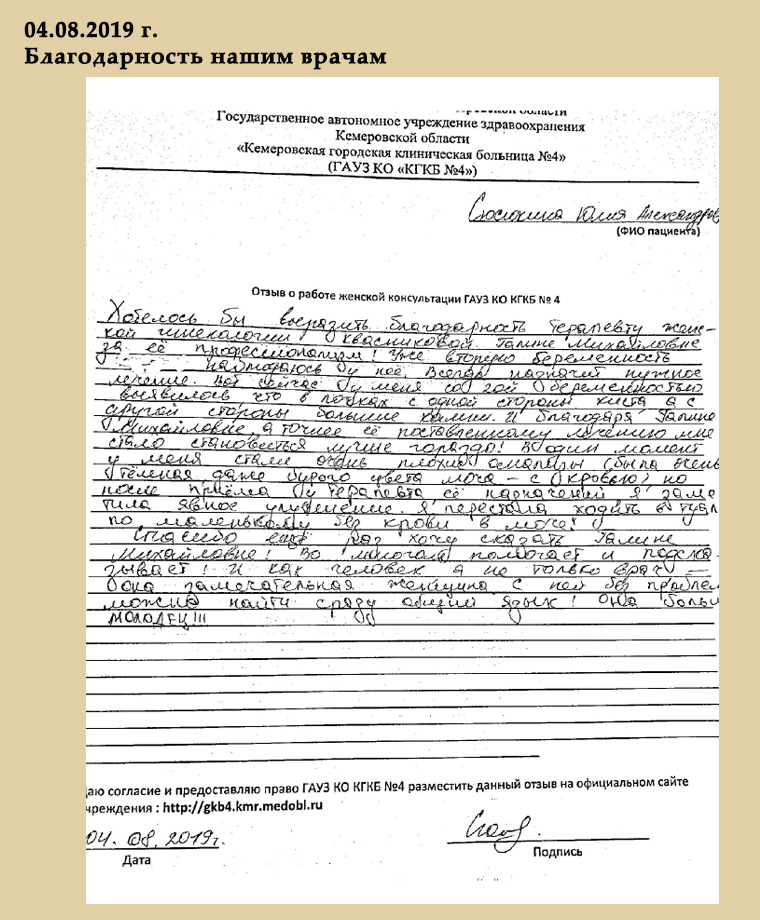 04.08.2019 г.
Благодарность нашим врачам
Государственное автономное учреждение здравоохранения
Кемеровской области
«Кемеровская городская клиническая больница №4»
(ГАУЗ КО «КГКБ №4»)
Юлия Александров
(ФИО пациента)
Отзыв о работе женской консультации ГАУЗ КО КГКБ № 4
Хотелось бы выразить благодарность терапевту женс-
кой гинекологии Квасниковой Галине Михайловне
за её профессионализм! Уже вторую беременность
наблюдаюсь у неё. Всегда назначит нужное
лечение. Вот сейчас у меня со 2ой беременностью
выявилось что в почках с одной стороны киста а с
другой стороны большие камни. И благодаря Галине
Михайловне, а точнее её поставленному лечению мне
стало становиться лучше гораздо! В один момент
у меня стали очень плохие анализы (была очень
тёмная даже бурого цвета моча – с кровью) но
после приёма у терапевта её назначений я заме
тила явное улучшение. Я перестала ходить в туал
по маленькому без крови в моче!
Спасибо ещё раз хочу сказать Галине
Михайловне! Во многом помогает и подска
зывает! И как человек а не только врач –
она замечательная женщина с ней без проблем
можно найти сразу общий язык! Она больш
МОЛОДЕЦ!!!
даю согласие и предоставляю право ГАУЗ КО КГКБ №4 разместить данный отзыв на официальном сайте
чреждения : http://gkb4.kmr.medobl.ru
04. 08. 2019г.
Дата
Подпись